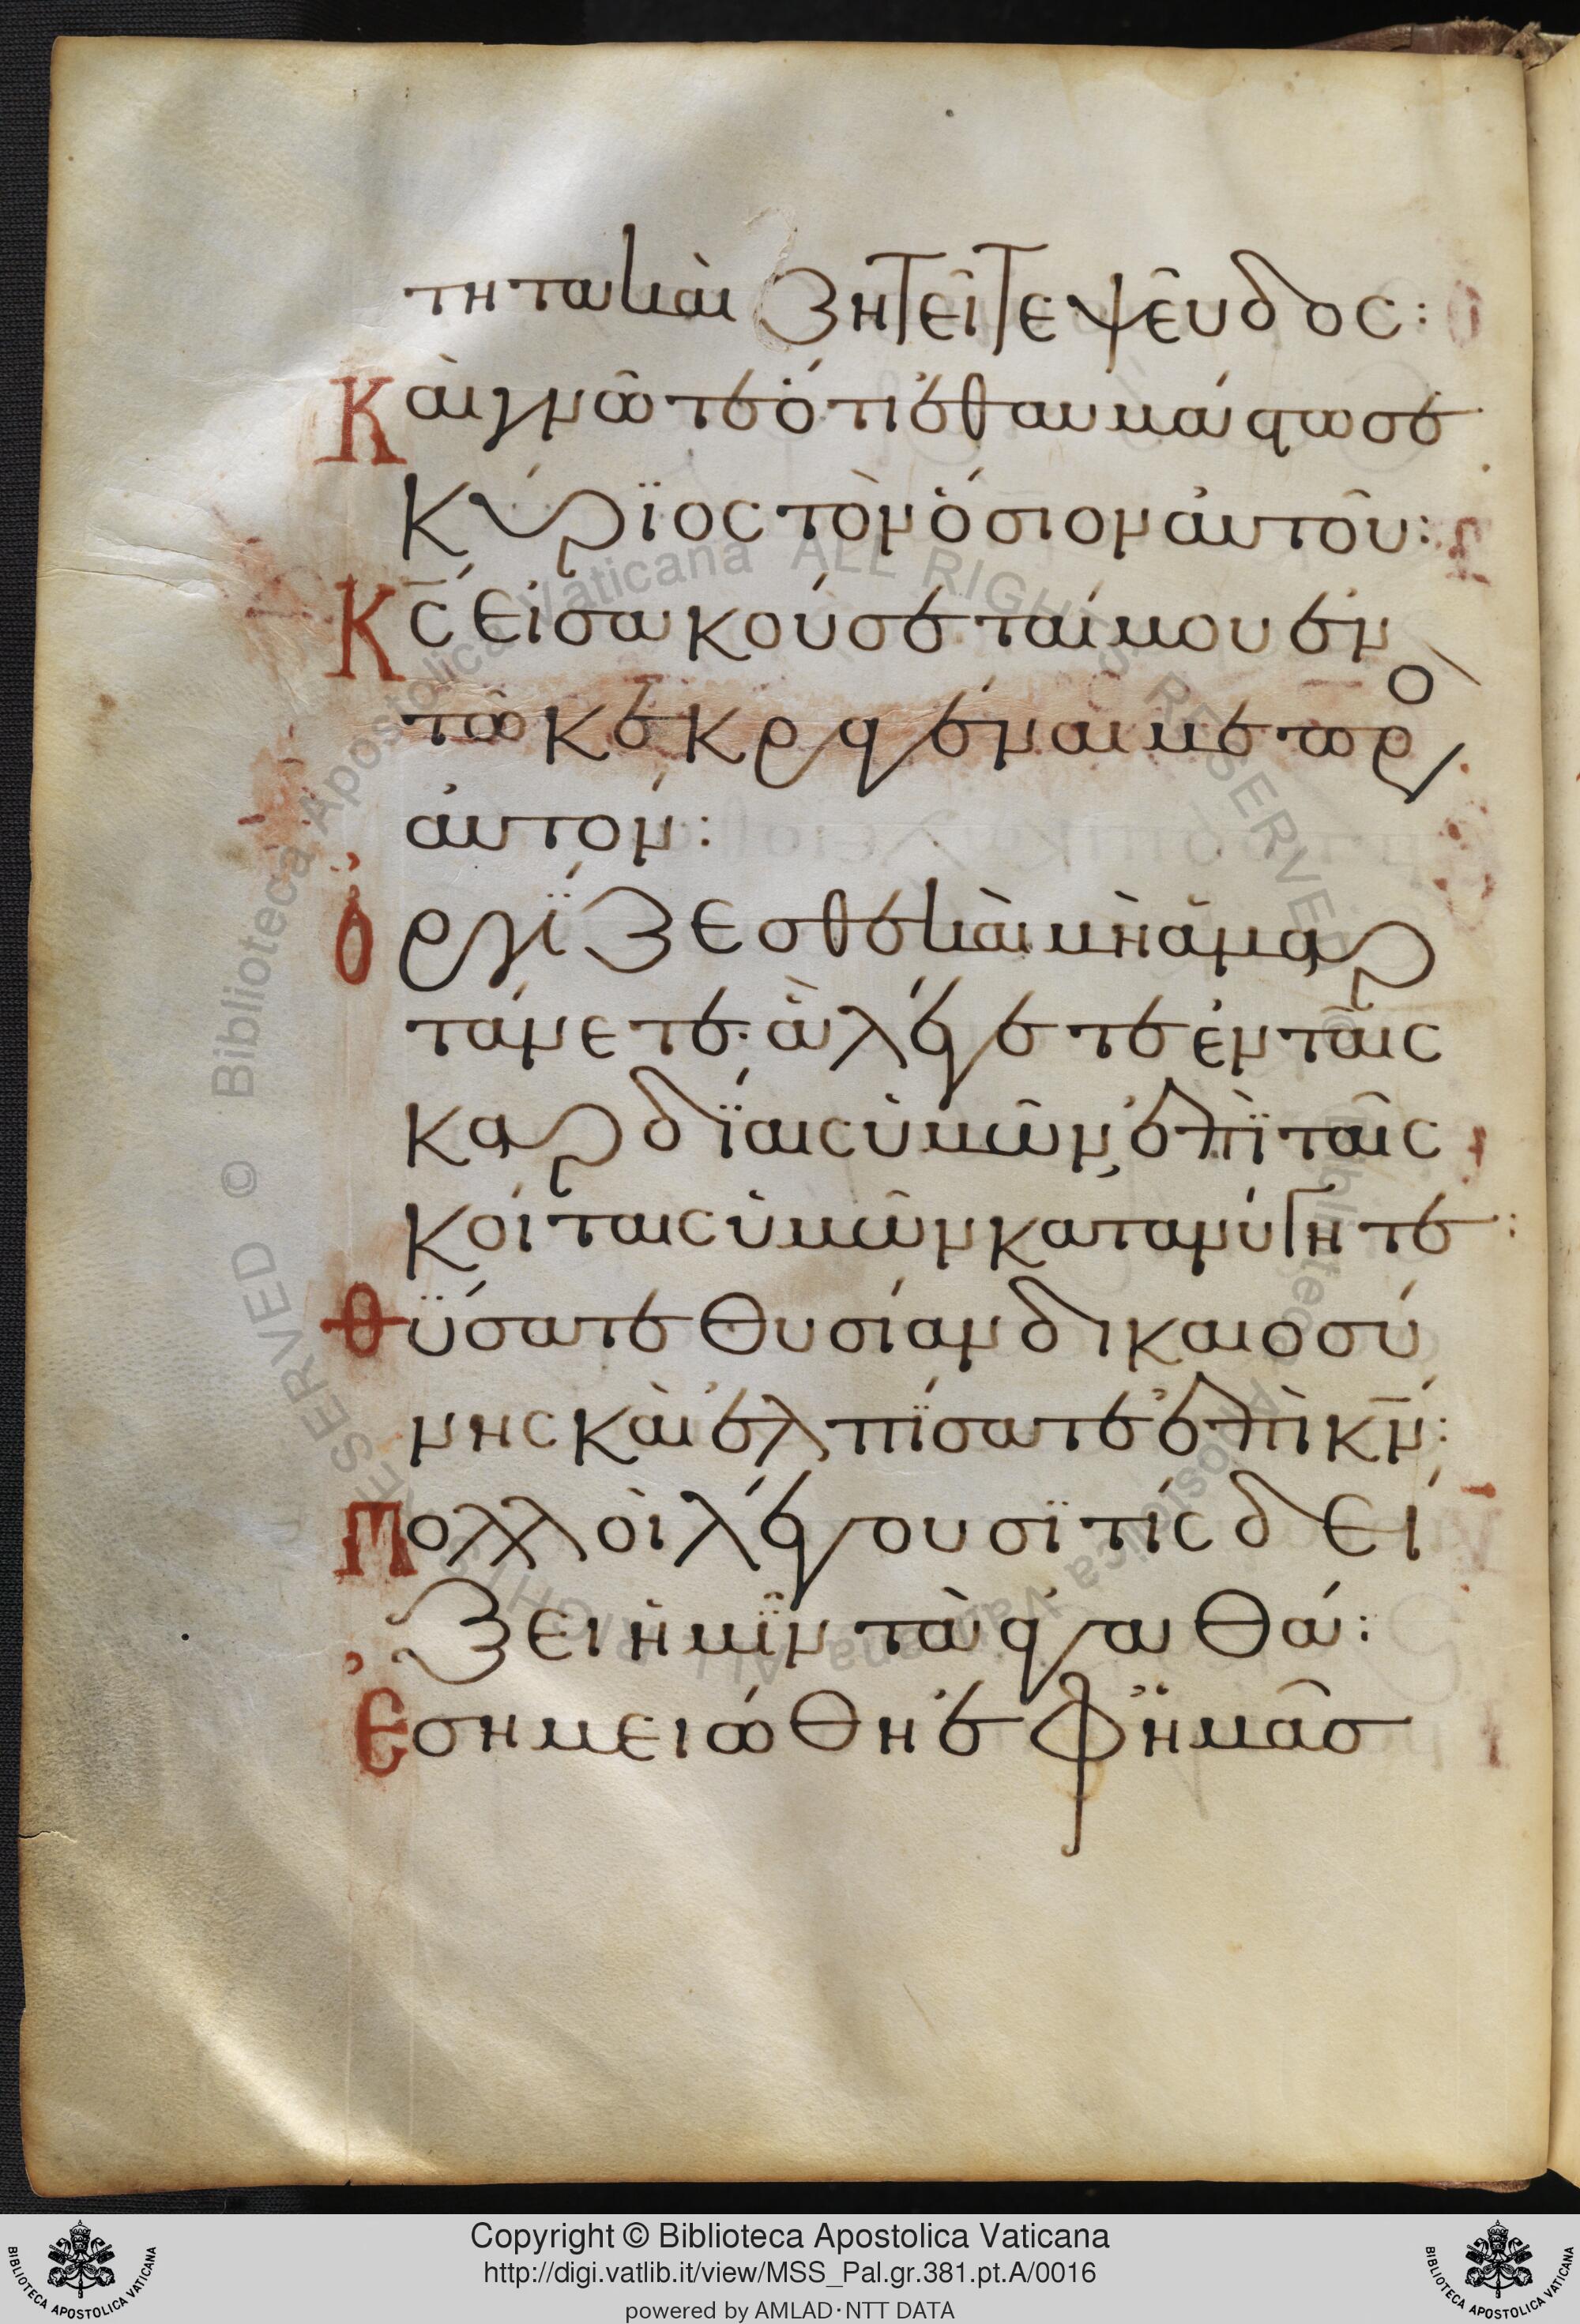 τητα καὶ ζητεῖτε ψεῦδος:
Καὶ γνῶτε ὅτι ἐθαυμάστωσε
κύριος τὸν ὅσιον αὐτοῦ:
Κ̅ς εἰσακούσεταί μου ἐν
τῶ κεκραγέναι με πρὸ
αὐτόν:
Ὀργίζεσθε καὶ μὴ ἁμαρ
τάνετε· ἃ λέγετε ἐν ταῖς
καρδίαις ὑμῶν, ἐπὶ ταῖς
κοίταις ὑμῶν κατανύγητε:
Θύσατε θυσίαν δικαιοσύ
νης καὶ ἐλπίσατε ἐπὶ κ̅ν:
Πολλοὶ λέγουσι τίς δεί
ξει ἡμῖν τὰ ἀγαθά:
Ἐσημειώθη ἐφ ἡμᾶσ
Copyright © Biblioteca Apostolica Vaticana
http://digi.vatlib.it/view/MSS_Pal.gr.381.pt.A/0016
powered by AMLAD·NTT DATA
BIBLIOTECA APOSTOLICA VATICANA
BIBLIOTECA APOSTOLICA VATICANA